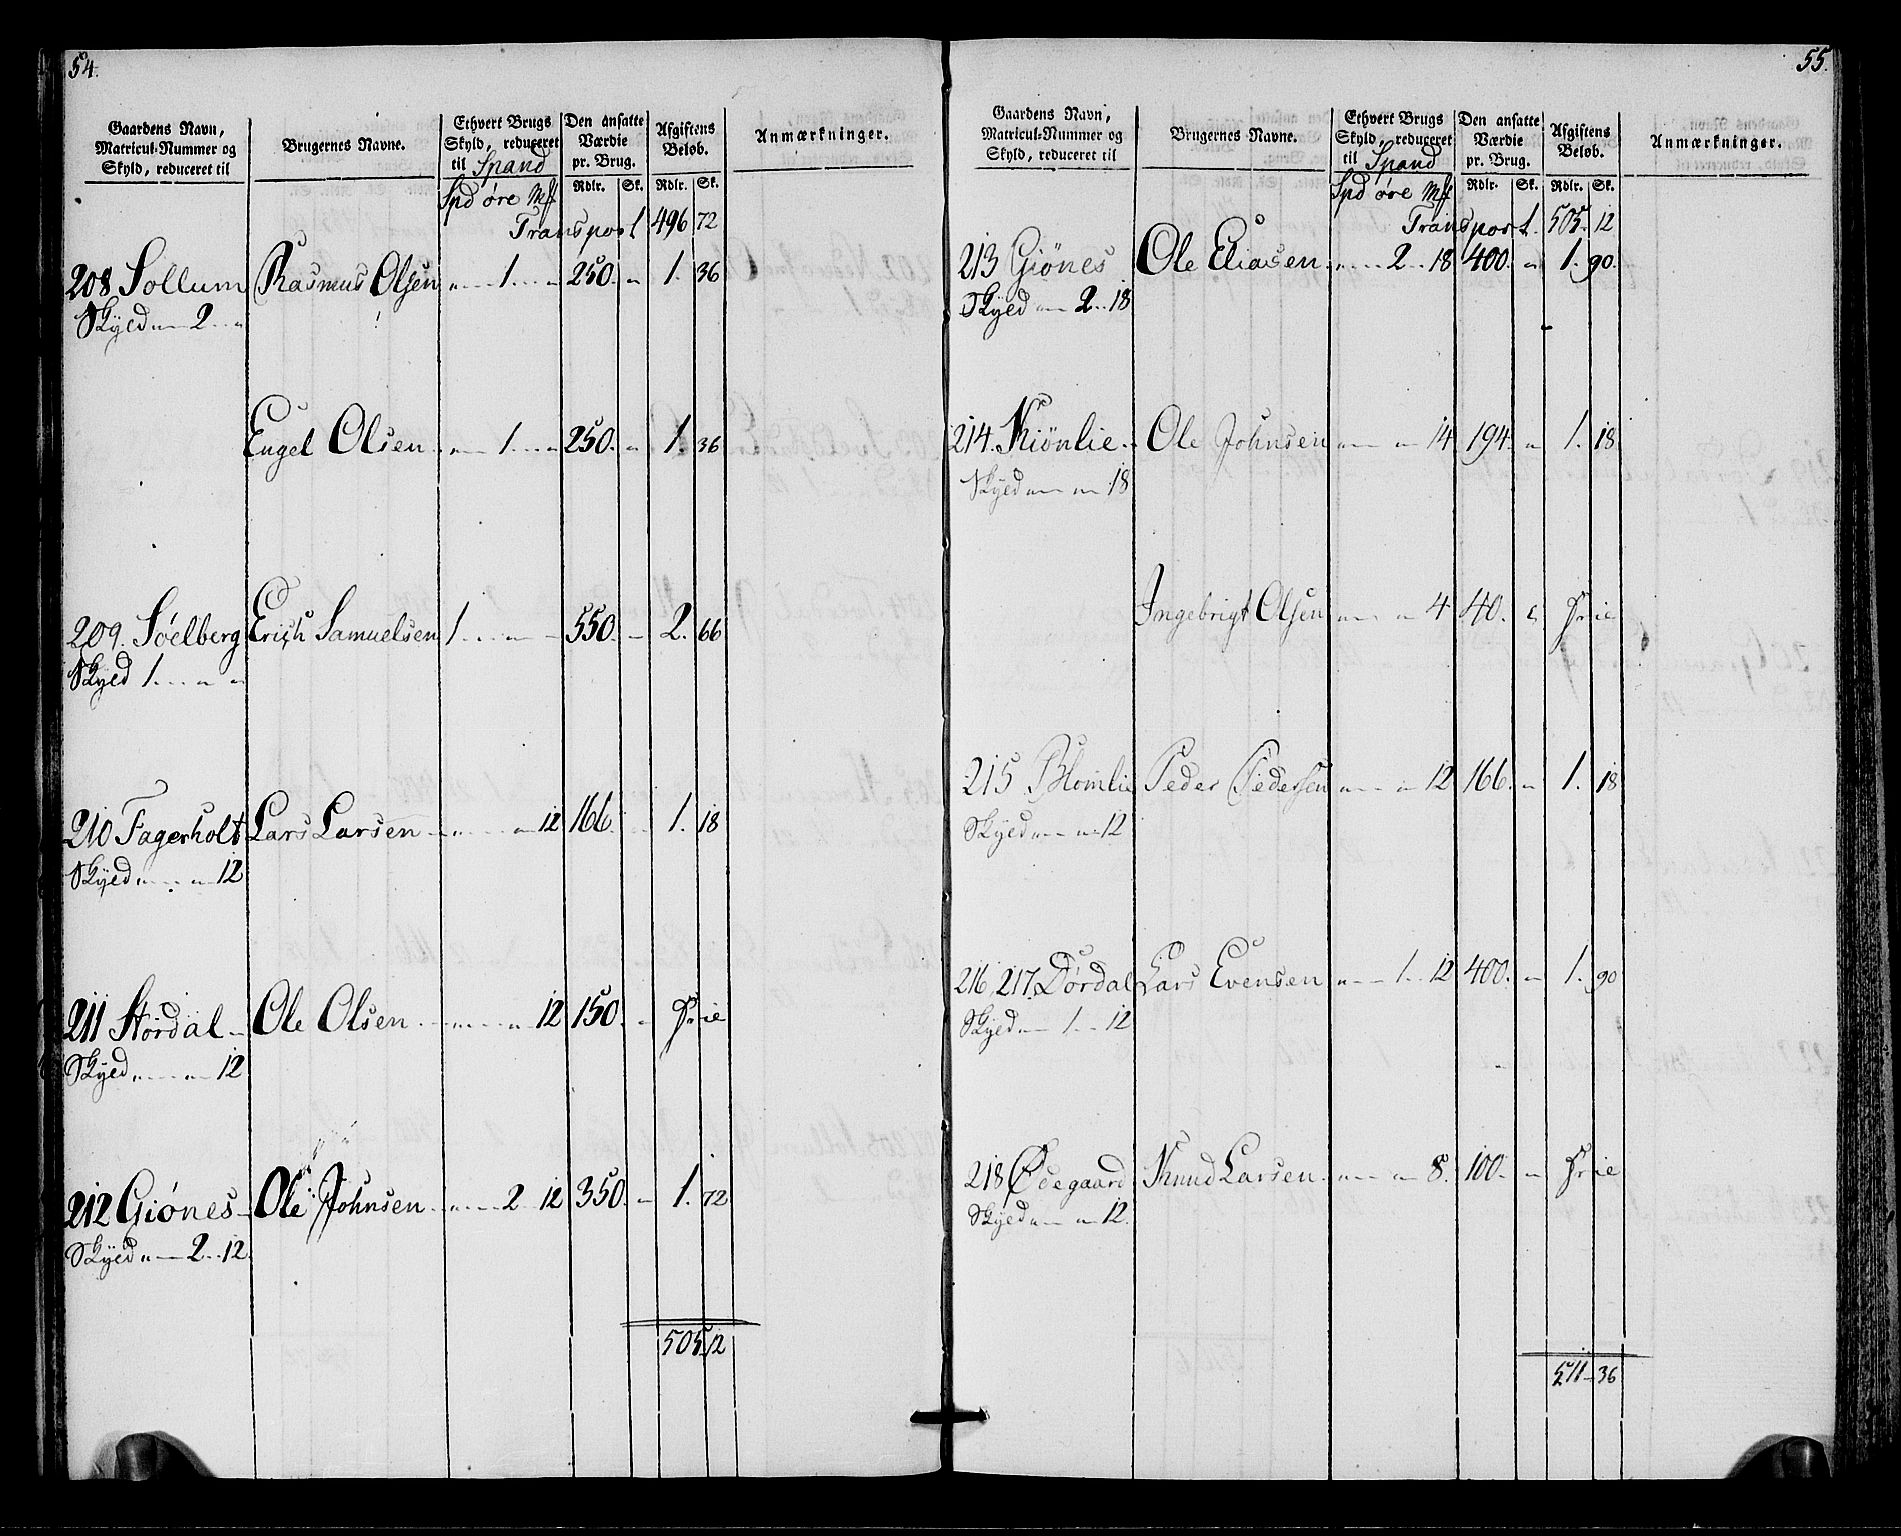 54.
Gaardens Navn, Matricul-Nummer og Skyld, reduceret til
Brugernes Navne.
Ethvert Brugs Skyld, reduceret til Spand
Den ansatte Værdie pr. Brug.
Afgiftens Beløb.
Anmærkninger.
Spd øre Mk
Rdlr. Sk. Rdlr. Sk.
Transport 496 72
208 Sollum Rasmus Olsen " 1 " 250. " 1. 36
Skyld " 2 "
Engel Olsen " 1 " 250. " 1. 36
209. Søelberg Erich Samuelsen 1 " " 550. " 2. 66
Skyld 1 " "
210 Fagerholt Lars Larsen " " 12 166. " 1. 18
Skyld " " 12
211 Stordal Ole Olsen " " 12 150. " Frie
Skyld " " 12
212 Giønes Ole Johnsen " 2 12 350. " 1. 72
Skyld " 2 12.
505 12
55.
Gaardens Navn, Matricul-Nummer og Skyld, reduceret til
Brugernes Navne.
Ethvert Brugs Skyld, reduceret til Spand
Den ansatte Værdie pr. Brug.
Afgiftens Beløb.
Anmærkninger.
Spd øre Mk
Rdlr. Sk. Rdlr. Sk.
Transport. 505. 12
213 Giønes Ole Eliasen " 2 18 400. " 1. 90.
Skyld " 2 18
214. Kiønlie Ole Johnsen " " 14 194. " 1. 18
Skyld " " 18
Ingebrigt Olsen " " 4 40. " Frie
215 Blomlie Peder Pedersen " " 12 166. " 1. 18
Skyld " " 12
216, 217. Dørdal Lars Evensen " 1 12 400. " 1. 90
Skyld " 1 12
218 Ødegaard Knud Larsen " " 8. 100. " Frie
Skyld " " 12.
511 36